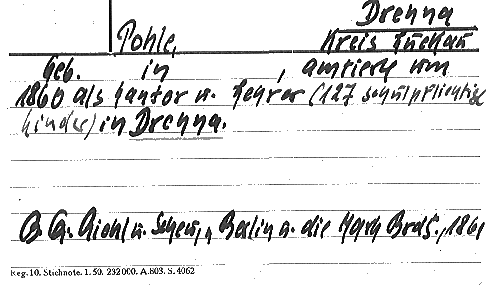 Drenna
Pohle, Kreis Luckau
Geb. in , amtierte um
1860 als Kantor u. Lehrer (127 schulpflichtige
Kinder) in Drenna.
G. Riehl u. Scheu, Berlin u. die Mark Brdg., 1861
Reg. 10. Stichnote. 1. 50. 232000. A.803. S. 4062